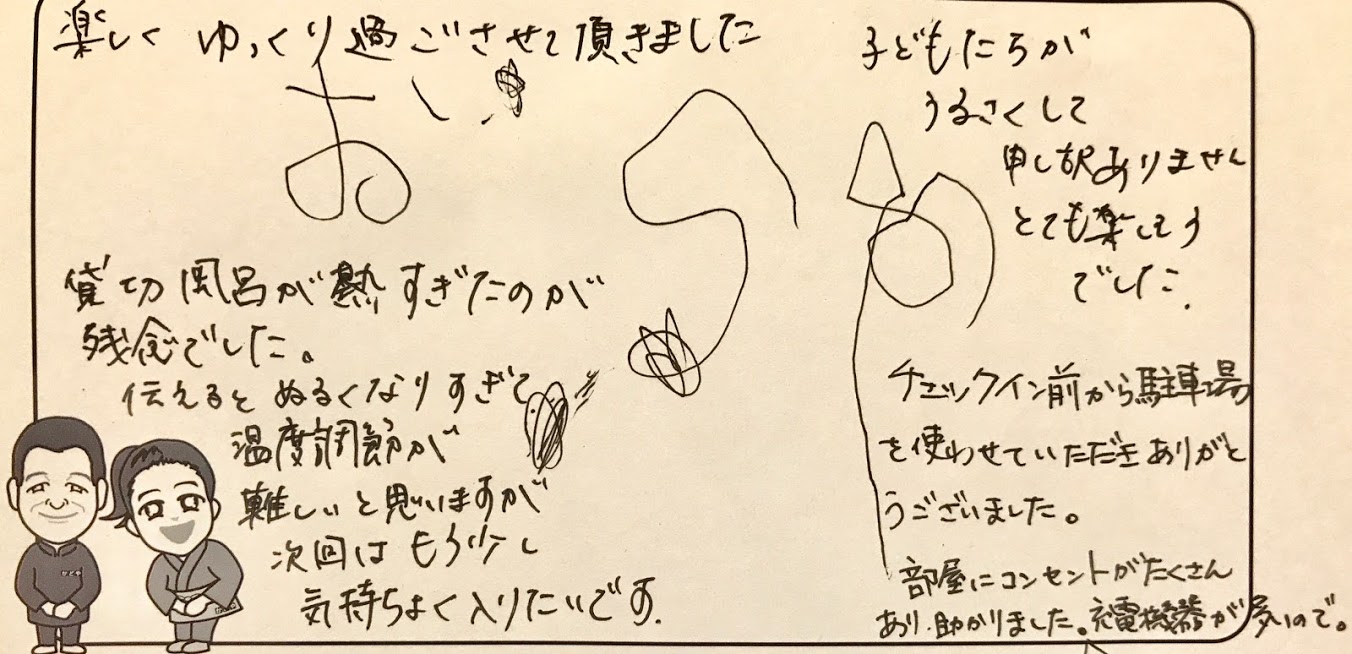 楽しく ゆっくり過ごさせて頂きました
お
貸切風呂が熱すぎたのが
残念でした。
伝えるとぬるくなりすぎて
温度調節が
難しいと思いますが
次回はもう少し
気持ちよく入りたいです.
子どもたちが
うるさくして
申し訳ありません
とても楽しそう
でした.
チェックイン前から駐車場
を使わせていただきありがと
うございました。
部屋にコンセントがたくさん
あり、助かりました。充電機器が多いので。